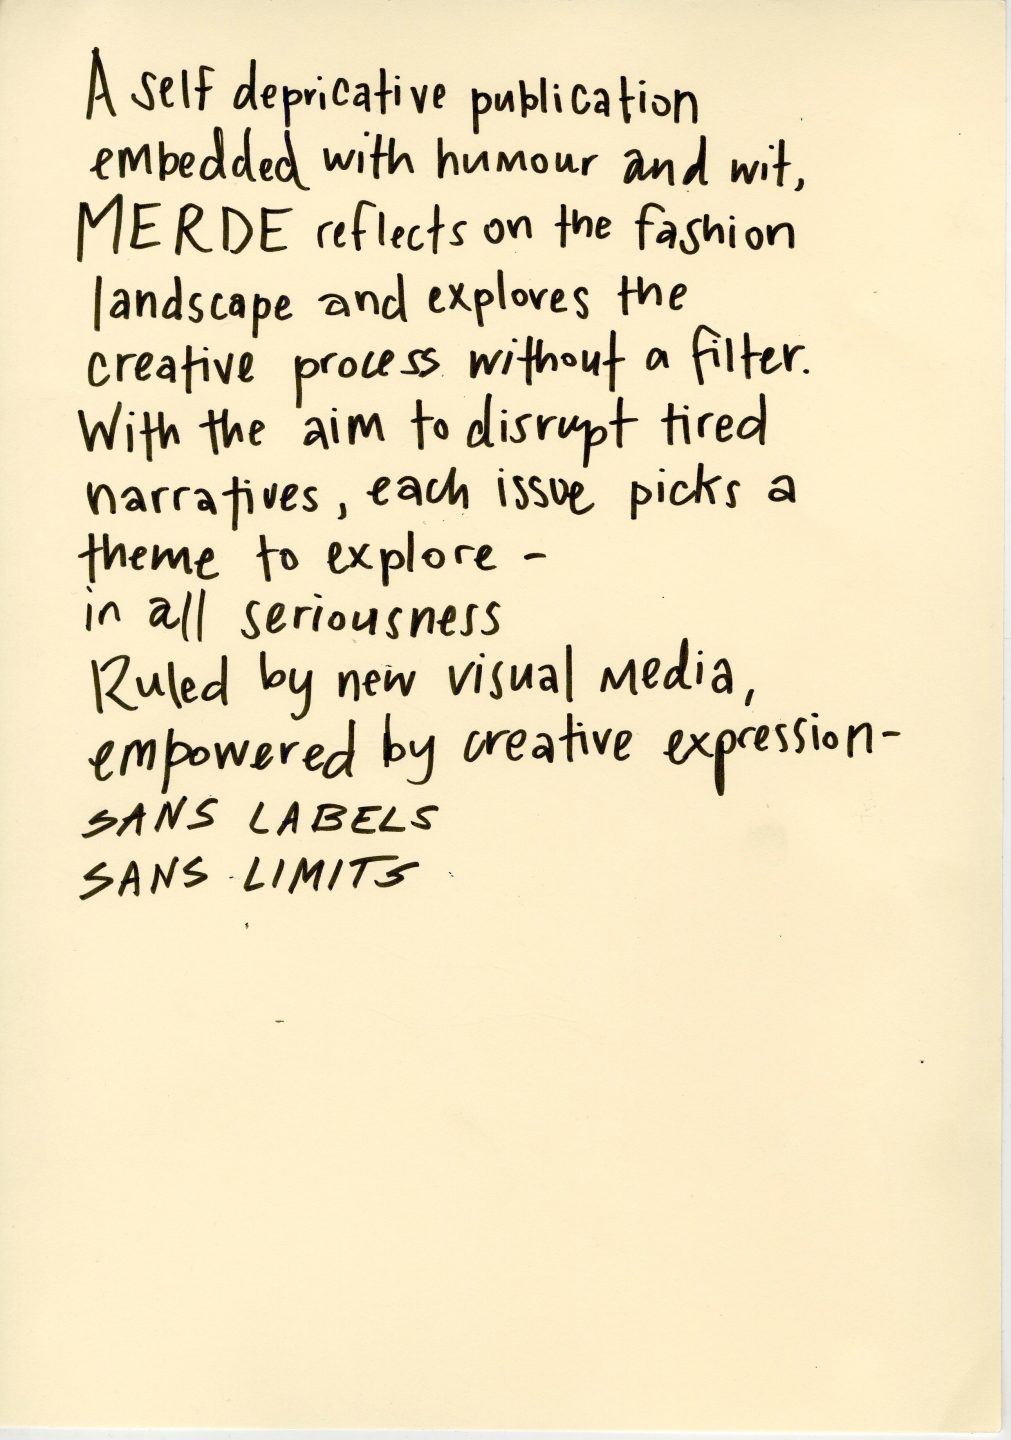 A self depricative publication
embedded with humour and wit,
MERDE reflects on the fashion
landscape and explores the
creative process without a filter.
With the aim to disrupt tired
narratives, each issue picks a
theme to explore -
in all seriousness
Ruled by new visual media,
empowered by creative expression-
SANS LABELS
SANS LIMITS